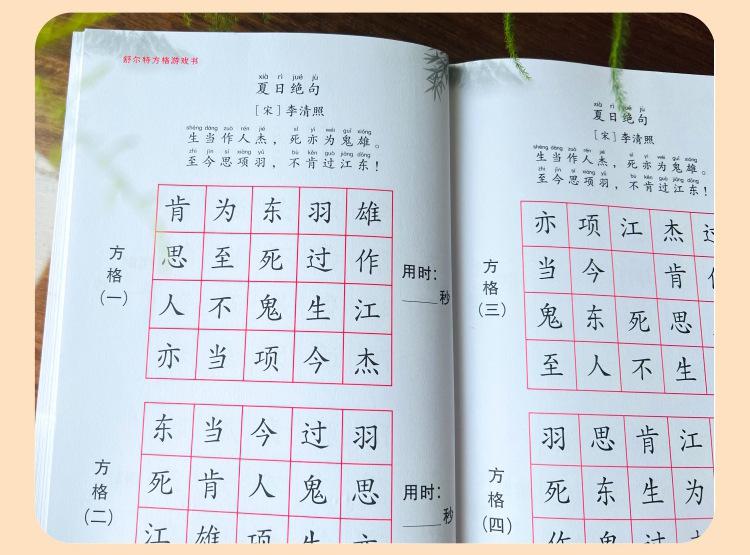 舒尔特方格游戏书
xià rì jué jù
夏日绝句
[宋]李清照
shēng dāng zuò rén jié sǐ yì wéi guǐ xióng
生当作人杰，死亦为鬼雄。
zhì jīn sī xiàng yǔ bù kěn guò jiāng dōng
至今思项羽，不肯过江东！
方格(一)
肯 为 东 羽 雄
思 至 死 过 作
人 不 鬼 生 江
亦 当 项 今 杰
用时：
____秒
方格(二)
东 当 今 过 羽
死 肯 人 鬼 思
江 雄 项 生 亦
用时：
____秒
xià rì jué jù
夏日绝句
[宋]李清照
shēng dāng zuò rén jié sǐ yì wéi guǐ xióng
生当作人杰，死亦为鬼雄。
zhì jīn sī xiàng yǔ bù kěn guò jiāng dōng
至今思项羽，不肯过江东！
方格(三)
亦 项 江 杰 过
当 今 肯 作
鬼 东 死 思
至 人 不 生
方格(四)
羽 思 肯 江
死 东 生 为
作 鬼 过